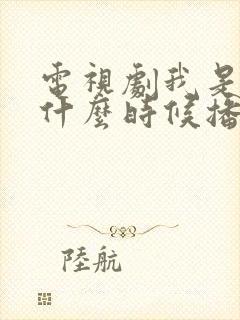 電視劇我是
什麼時候播
陸航